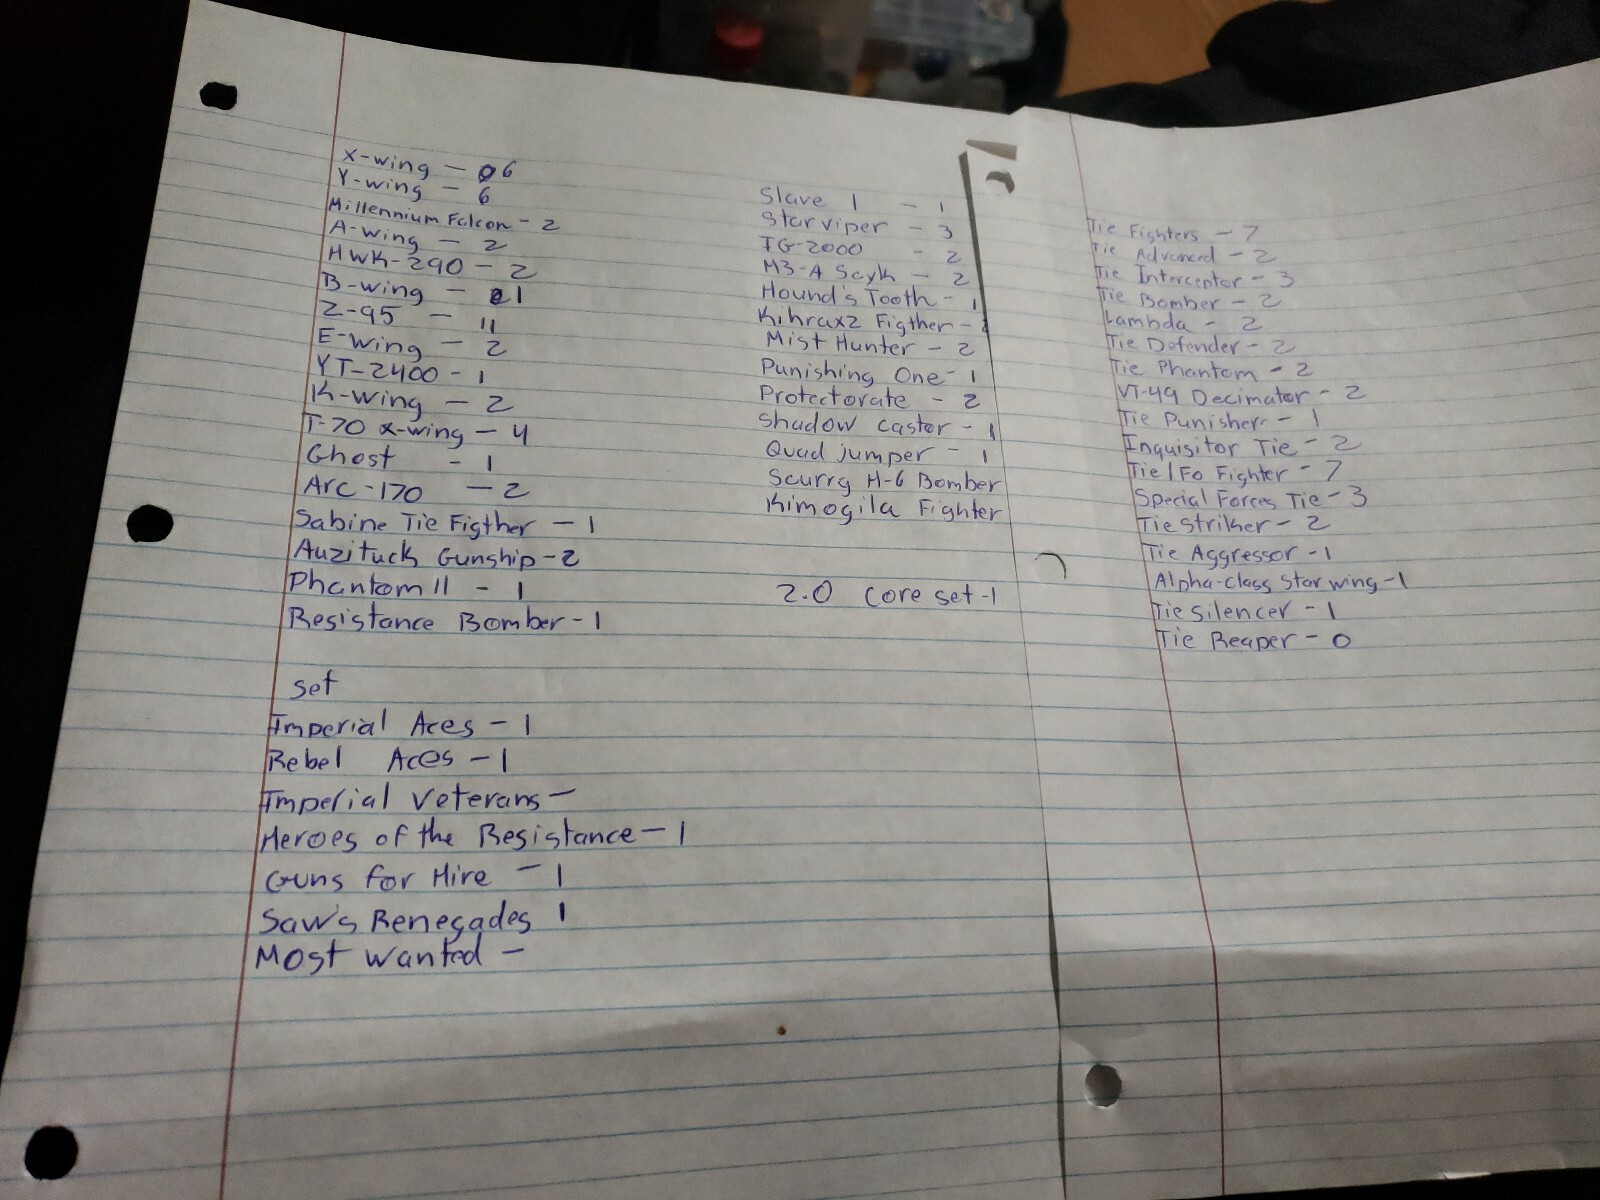 X-wing - 6
Y-wing - 6
Millennium Falcon - 2
A-wing - 2
HWK-290 - 2
B-wing - 1
Z-95 - 11
E-wing - 2
YT-2400 - 1
K-wing - 2
T-70 x-wing - 4
Ghost - 1
Arc-170 - 2
Sabine Tie Figther - 1
Auzituck Gunship - 2
Phantom II - 1
Resistance Bomber - 1
set
Imperial Aces - 1
Rebel Aces - 1
Imperial Veterans -
Heroes of the Resistance - 1
Guns for Hire - 1
Saw's Renegades 1
Most Wanted -
Slave 1 - 1
Starviper - 3
IG-2000 - 2
M3-A Scyk - 2
Hound's Tooth - 1
Kihraxz Figther -
Mist Hunter - 2
Punishing One - 1
Protectorate - 2
Shadow caster - 1
Quad jumper - 1
Scurrg H-6 Bomber
Kimogila Fighter
2.0 core set - 1
Tie Fighters - 7
Tie Advanced - 2
Tie Interceptor - 3
Tie Bomber - 2
Lambda - 2
Tie Defender - 2
Tie Phantom - 2
VT-49 Decimator - 2
Tie Punisher - 1
Inquisitor Tie - 2
Tie/Fo Fighter - 7
Special Forces Tie - 3
Tie Striker - 2
Tie Aggressor - 1
Alpha-class Star wing - 1
Tie Silencer - 1
Tie Reaper - 0